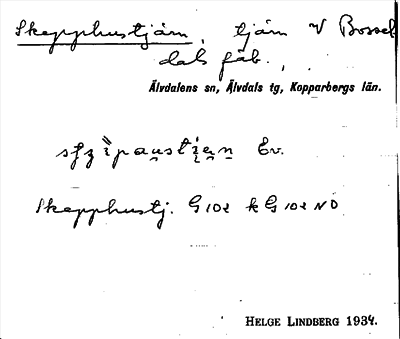 Skepphustjärn, tjärn V Bossel-
dals fäb.,
Älvdalens sn, Älvdals tg, Kopparbergs län.
Ev.
Skepphustj. G 102 k G 102 NO
HELGE LINDBERG 1934.